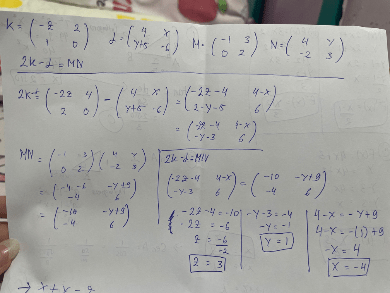 K = (-z 2 1 0) L = (4 x y+5 -6) M = (-1 3 0 2) N = (4 y -2 3)
2K-L = MN
2K-L = (-2z 4 2 0) - (4 x y+5 -6) = (-2z-4 4-x 2-y-5 6)
= (-2z-4 4-x -y-3 6)
MN = (-1 3 0 2) (4 y -2 3)
= (-4-6 -y+9 -4 6)
= (-10 -y+9 -4 6)
2K-L=MN
(-2z-4 4-x -y-3 6) = (-10 -y+9 -4 6)
-2z-4=-10
-2z = -6
z = -6/-2
z = 3
-y-3=-4
-y=-1
y=1
4-x = -y+9
4-x = -(1)+9
-x = 4
x = -4